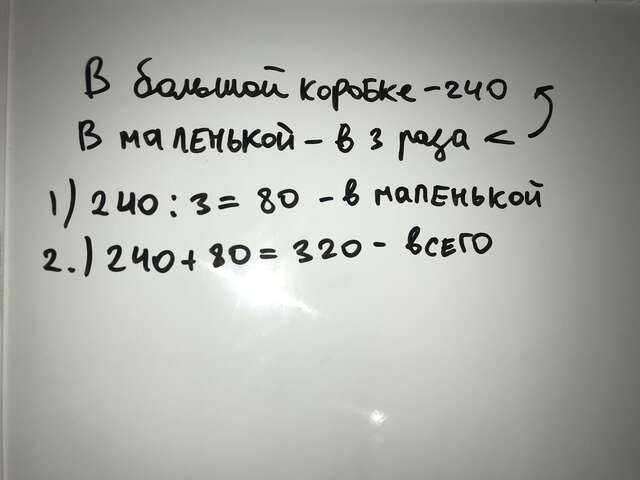 В большой коробке - 240
В маленькой - в 3 раза <
1) 240 : 3 = 80 - в маленькой
2.) 240 + 80 = 320 - всего